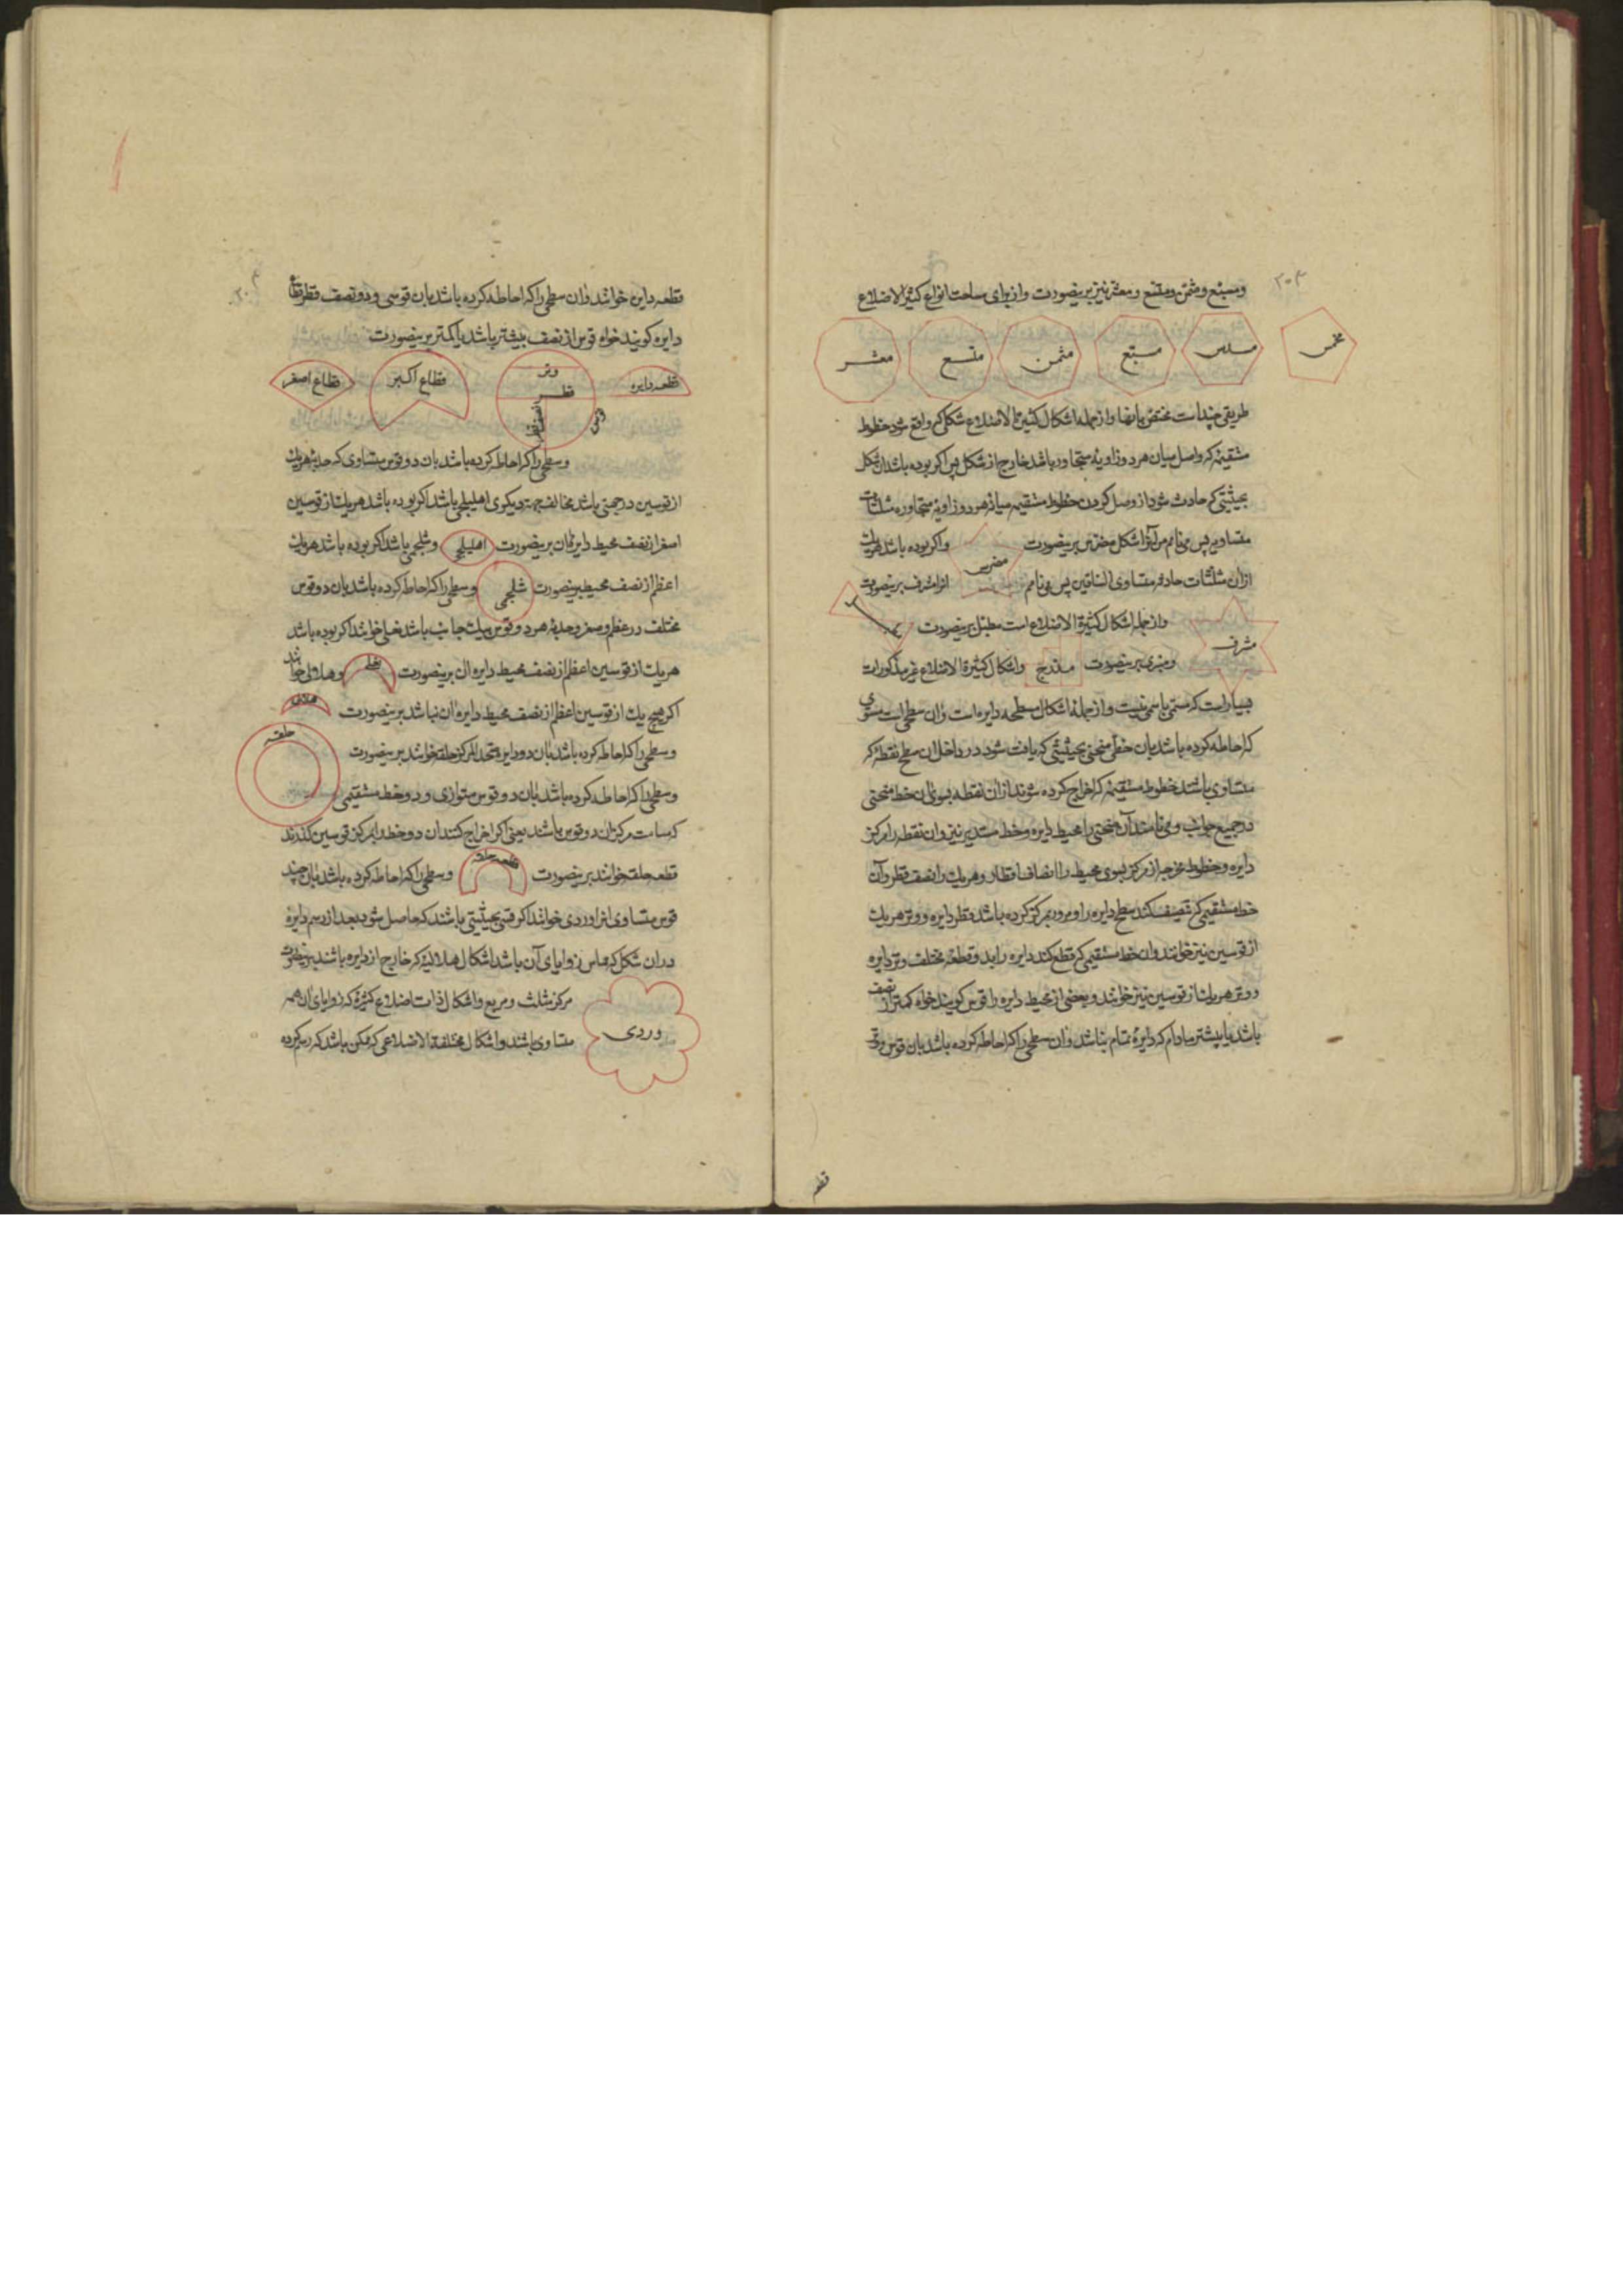 ۲۰۳
ومسبع ومثمن ومتسع ومعشر نیز برینصورت وازبرای ساحت انواع کثیرالاضلاع
مخمس
مسدس
مسبع
مثمن
متسع
معشر
طریقی چنداست مختص بانها وازجمله اشکال کثیرة الاضلاع شکلی که واقع شود خطوط
مستقیمه که واصل میان هردوزاویه متجاور باشد خارج ازشکل پس اکر بوده باشدان شکل
بحیثیتی که حادث شود از وصل کردن خطوط مستقیم میانه هردوزاویه متجاوره مثلثات
متساویه پس می نامم من آنرا شکل مضرس برینصورت
مضرس
واکر بوده باشد هریک
ازان مثلثات حادثه متساوی الساقین پس می نامم
انرامشرف برینصورت
مشرف
وازجمله اشکال کثیرة الاضلاع است مطبل برینصورت
ومنبری برینصورت
مدرج
واشکال کثیرة الاضلاع غیرمذکورات
بسیاراست که مسمی باسمی نیست وازجمله اشکال مسطحه دایره است وان سطحی است مستوی
که احاطه کرده باشد بان خطی منحنی بحیثیتی که یافت شود در داخل ان سطح نقطه که
متساوی باشند خطوط مستقیمه که اخراج کرده شوند ازان نقطه بسوی ان خط منحنی
درجمیع جوانب ومی نامند آن منحنی را محیط دایره وخط مستدیر نیز وان نقطه را مرکز
دایره وخطوط مخرجه ازمرکز بسوی محیط را انصاف اقطار وهریک را نصف قطر وآن
خط مستقیمی که تنصیف کند سطح دایره را ومرور بمرکز کرده باشد قطر دایره ووتر هریک
ازقوسین نیز خوانند وان خط مستقیمی که قطع کند دایره را بدو قطعه مختلف وتر دایره
ووتر هریک از قوسین نیز خوانند وبعضی ازمحیط دایره را قوس کویند خواه کمتر از نصف
باشد یا بیشتر مادام که دایره تمام نباشد وان سطحی را که احاطه کرده باشد بان قوس ووتر
قطعه
قطعه دایره خوانند وان سطحی را که احاطه کرده باشد بان قوسی ودو نصف قطر قطاع
دایره کویند خواه قوس ازنصف بیشتر باشد یا کمتر برینصورت
قطعه دایره
وتر
قطر
قوس
قطاع اکبر
قطاع اصغر
وسطحی را که احاطه کرده باشد بان دو قوس متساوی که حدبه هریک
ازقوسین درجهتی باشد مخالف جهت دیکری اهلیلجی باشد اکر بوده باشد هریک ازقوسین
اصغر ازنصف محیط دایره ان برینصورت
اهلیلجی
وشلجمی باشد اکر بوده باشد هریک
اعظم ازنصف محیط برینصورت
شلجمی
وسطحی را که احاطه کرده باشد بان دو قوس
مختلف درعظم وصغر وحدبه هردو قوس بیک جانب باشد نعلی خوانند اکر بوده باشد
هریک ازقوسین اعظم ازنصف محیط دایره ان برینصورت
نعلی
وهلالی خوانند
اکر هیچ یک ازقوسین اعظم ازنصف محیط دایره ان نباشد برینصورت
هلالی
وسطحی را که احاطه کرده باشد بان دودایره متحد المرکز حلقه خوانند برینصورت
حلقه
وسطحی را که احاطه کرده باشد بان دو قوس متوازی ودوخط مستقیمی
که سامت مرکز ان دو قوس باشند یعنی اکر اخراج کنند ان دوخط را بمرکز قوسین کذرند
قطعه حلقه خوانند برینصورت
قطعه حلقه
وسطحی را که احاطه کرده باشد بان چند
قوس متساوی انرا وردی خوانند اکر قسی بحیثیتی باشند که حاصل شود بعد از رسم دایره
دران شکل که مماس زوایای آن باشد اشکال هلالیه که خارج از دایره باشند برینصورت
وردی
مرکز مثلث ومربع واشکال ذات اضلاع کثیره که زوایای ان همه
متساوی باشند واشکال مختلفة الاضلاعی که ممکن باشد که رسم کرده